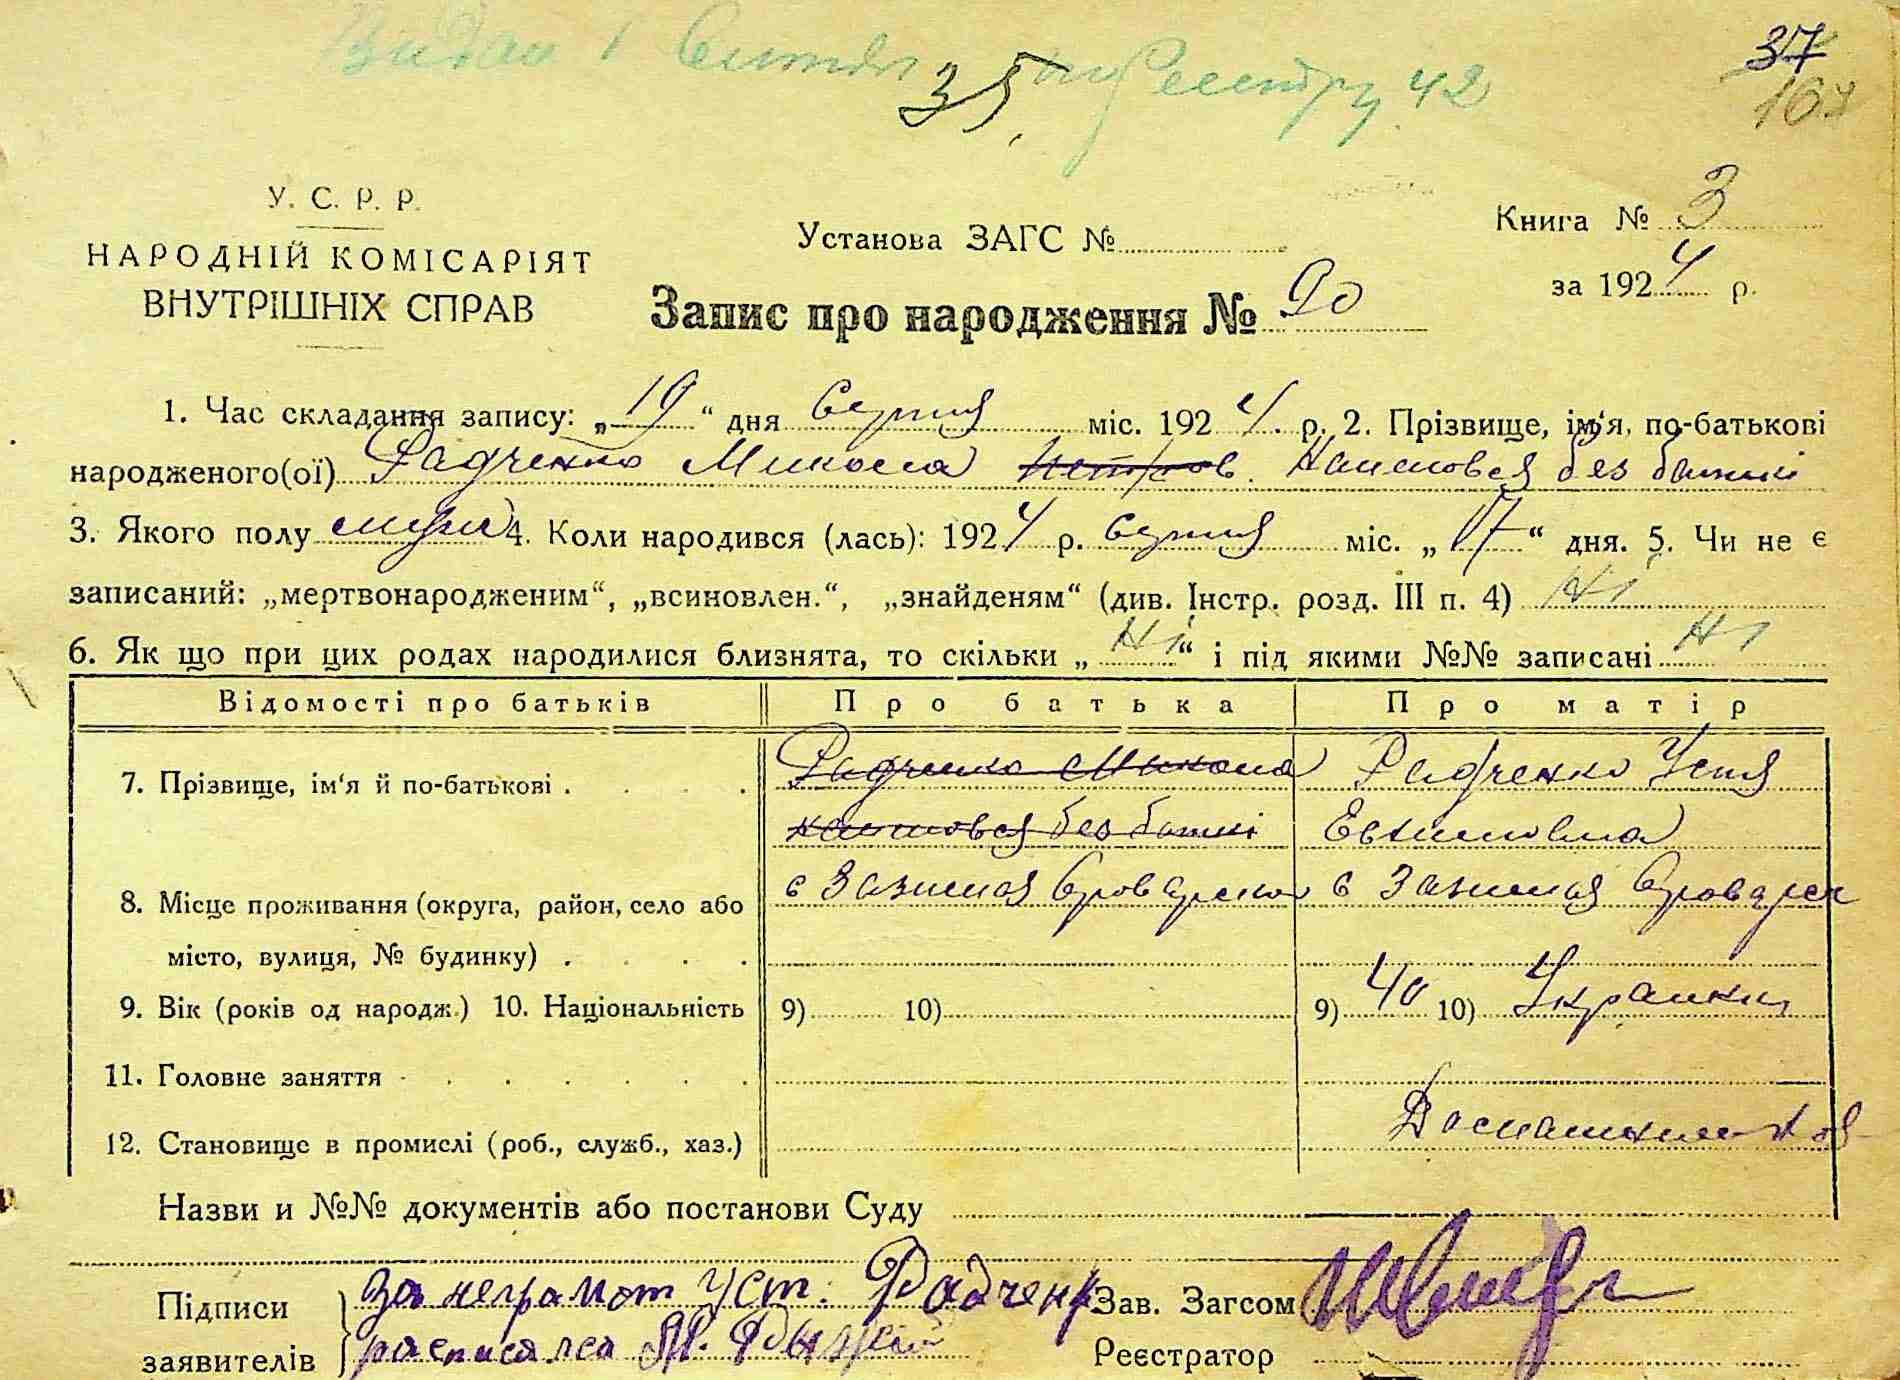 Видан 1 по Реестру 42
35.
37
167
У. С. Р. Р.
НАРОДНІЙ КОМІСАРІЯТ
ВНУТРІШНІХ СПРАВ
Установа ЗАГС №
Книга № 3
за 1924 р.
Запис про народження № 90
1. Час складання запису: „19“ дня Серпня міс. 1924 р. 2. Прізвище, ім‘я, по-батькові
народженого(ої) Радченко Микола без батькі
3. Якого полу 4. Коли народився (лась): 1924 р. Серпня міс. „17“ дня. 5. Чи не є
записаний: „мертвонародженим“, „всиновлен.“, „знайденям“ (див. Інстр. розд. III п. 4) Ні
6. Як що при цих родах народилися близнята, то скільки „Ні“ і під якими №№ записані Ні
Відомості про батьків Про батька Про матір
7. Прізвище, ім‘я й по-батькові . . . . Радченко Микола Радченко Устя
без батькі
8. Місце проживання (округа, район, село або с Зазимая с Зазимая
місто, вулиця, № будинку) . . . .
9. Вік (років од народж.) 10. Національність 9) 10) 9) 40 10) Украинка
11. Головне заняття . . . . . .
12. Становище в промислі (роб., служб., хаз.)
Назви и №№ документів або постанови Суду
Підписи за неграмот Уст. Радченк Зав. Загсом
заявителів расписался Реєстратор